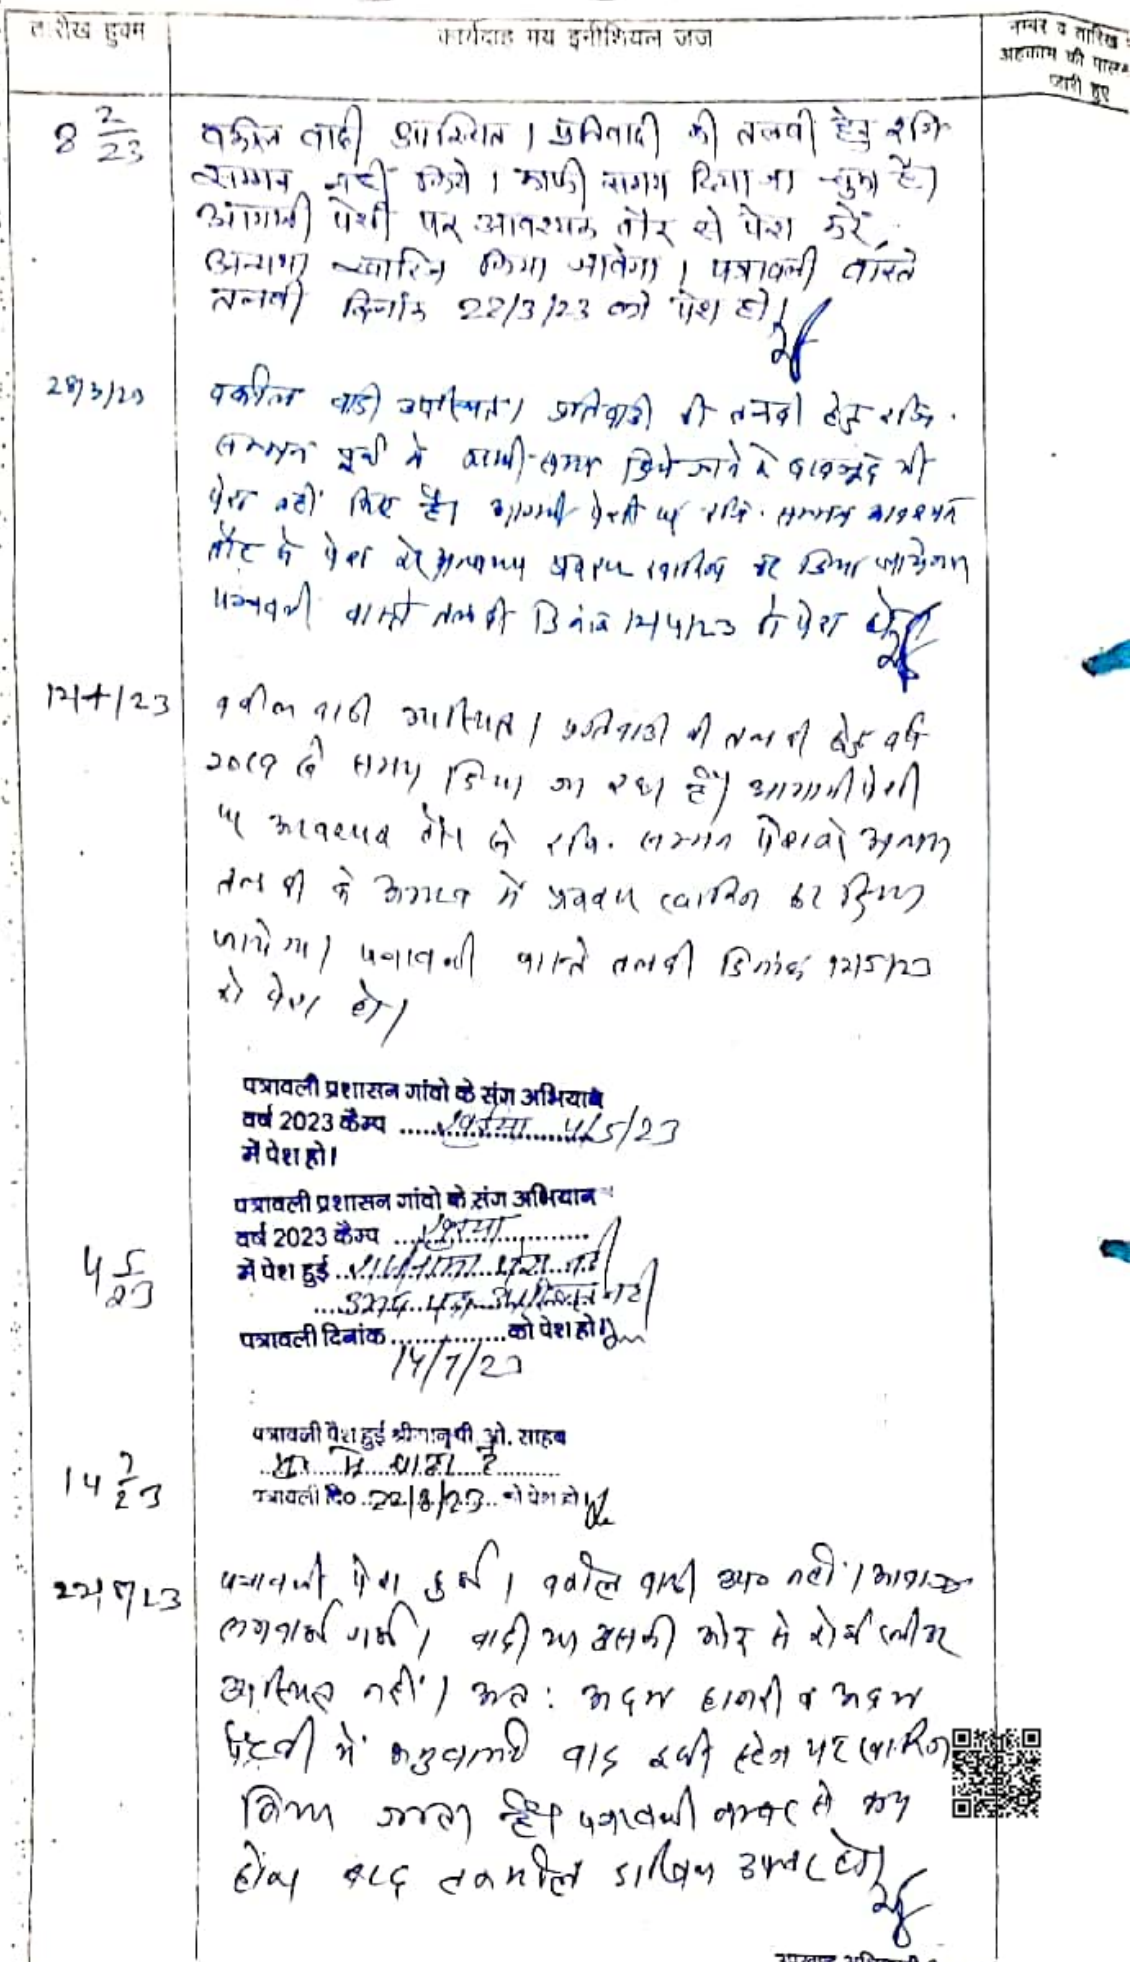 तारीख हुक्म
कार्यवाह मय इनीशियल जज
नम्बर व तारिख
अहकाम की पालन
जारी हुए
8 2/23
वकील वादी उपस्थित । प्रतिवादी की तलबी हेतु रजि
सम्मन नहीं किये । काफी समय दिया जा चुका है।
आगामी पेशी पर आवश्यक तौर से पेश करें
अन्यथा खारिज किया जावेगा । पत्रावली वास्ते
तलबी दिनांक 22/3/23 को पेश हो।
वकील वादी उपस्थित। प्रतिवादी की तलबी हेतु रजि.
सम्मन पूर्व में काफी समय दिये जाने के बावजूद भी
पेश नहीं किए है। आगामी पेशी पर रजि. सम्मन आवश्यक
तौर से पेश करे अन्यथा प्रकरण खारिज कर दिया जायेगा
पत्रावली वास्ते तलबी दिनांक 12/4/23 को पेश हो।
12/4/23
वकील वादी उपस्थित। प्रतिवादी की तलबी हेतु वर्ष
2019 से समय दिया जा रहा है। आगामी पेशी
पर आवश्यक तौर से रजि. सम्मन पेश करे अन्यथा
तलबी के अभाव में प्रकरण खारिज कर दिया
जायेगा। पत्रावली वास्ते तलबी दिनांक 12/5/23
को पेश हो।
पत्रावली प्रशासन गांवो के संग अभियान
वर्ष 2023 कैम्प ..................... 4/5/23
में पेश हो।
पत्रावली प्रशासन गांवो के संग अभियान
वर्ष 2023 कैम्प .....................
4 5/23
में पेश हुई राजीनामा पेश नहीं
पत्रावली दिनांक ............... को पेश हो।
14/7/23
पत्रावली पेश हुई श्रीमान् पी. ओ. साहब
14 7/23
पत्रावली दि० 22/8/23 को पेश हो
22/8/23
पत्रावली पेश हुई । वकील वादी उप० नहीं । आवाज
लगवाई गई । वादी या उसकी ओर से कोई वकील
उपस्थित नहीं । अत: अदम हाजरी व अदम
पैरवी में वाद इसी स्टेज पर खारिज
किया जाता है। पत्रावली नम्बर से कम
होकर बाद तकमील दाखिल दफ्तर हो।